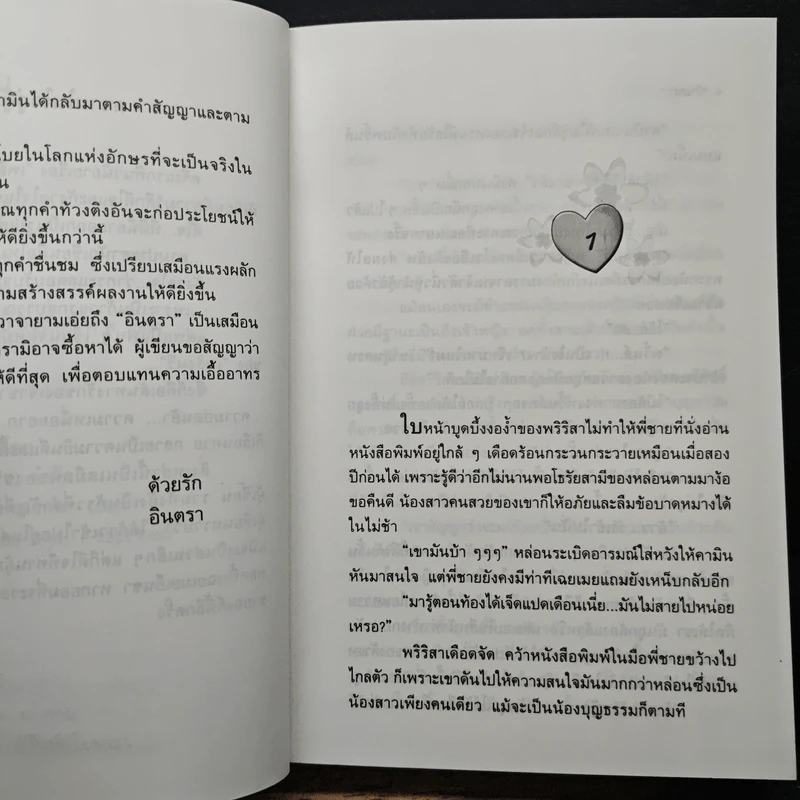 ามินได้กลับมาตามคำสัญญาและตาม
โบยในโลกแห่งอักษรที่จะเป็นจริงใน
น
ณทุกคำท้วงติงอันจะก่อประโยชน์ให้
ห้ดียิ่งขึ้นกว่านี้
ทุกคำชื่นชม ซึ่งเปรียบเสมือนแรงผลัก
ามสร้างสรรค์ผลงานให้ดียิ่งขึ้น
วาจายามเอ่ยถึง “อินตรา” เป็นเสมือน
ตรามิอาจซื้อหาได้ ผู้เขียนขอสัญญาว่า
ห้ดีที่สุด เพื่อตอบแทนความเอื้ออาทร
ด้วยรัก
อินตรา
1
ใบหน้าบูดบึ้งงอง้ำของพริริสาไม่ทำให้พี่ชายที่นั่งอ่าน
หนังสือพิมพ์อยู่ใกล้ ๆ เดือดร้อนกระวนกระวายเหมือนเมื่อสอง
ปีก่อนได้ เพราะรู้ดีว่าอีกไม่นานพอโธรัยสามีของหล่อนตามมาง้อ
ขอคืนดี น้องสาวคนสวยของเขาก็ให้อภัยและลืมข้อบาดหมางได้
ในไม่ช้า
“เขามันบ้า ๆๆๆ” หล่อนระเบิดอารมณ์ใส่หวังให้คามิน
หันมาสนใจ แต่พี่ชายยังคงมีท่าทีเฉยเมยแถมยังเหน็บกลับอีก
“มารู้ตอนท้องได้เจ็ดแปดเดือนเนี่ย...มันไม่สายไปหน่อย
เหรอ?”
พริริสาเดือดจัด คว้าหนังสือพิมพ์ในมือพี่ชายขว้างไป
ไกลตัว ก็เพราะเขาดันไปให้ความสนใจมันมากกว่าหล่อนซึ่งเป็น
น้องสาวเพียงคนเดียว แม้จะเป็นน้องบุญธรรมก็ตามที